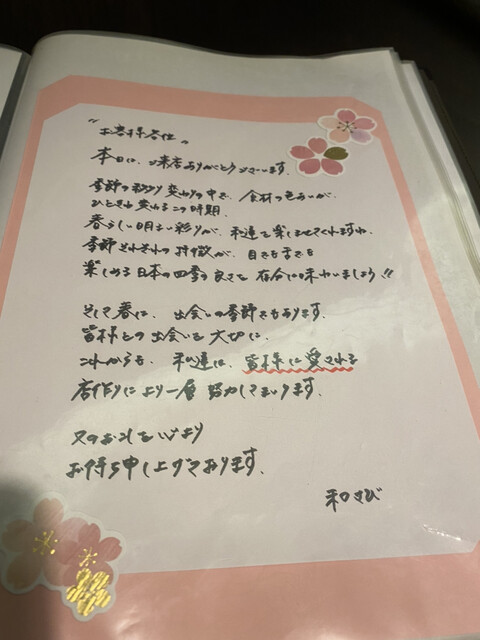 "お客様各位"
本日は、ご来店ありがとうございます。
季節の移り変わりの中で、食材の色あいが、
ひときわ変わるこの時期、
春らしい明るい彩りが、私達を楽しませてくれますね
季節それぞれの特徴が、目でも舌でも
楽しめる日本の四季の良さを存分に味わいましょう!!
そして春は、出会いの季節でもあります。
皆様との出会いを大切に、
これからも、私達は、皆様に愛される
店作りにより一層努力してまいります。
又のお越しを心より
お待ち申し上げております。
和さび